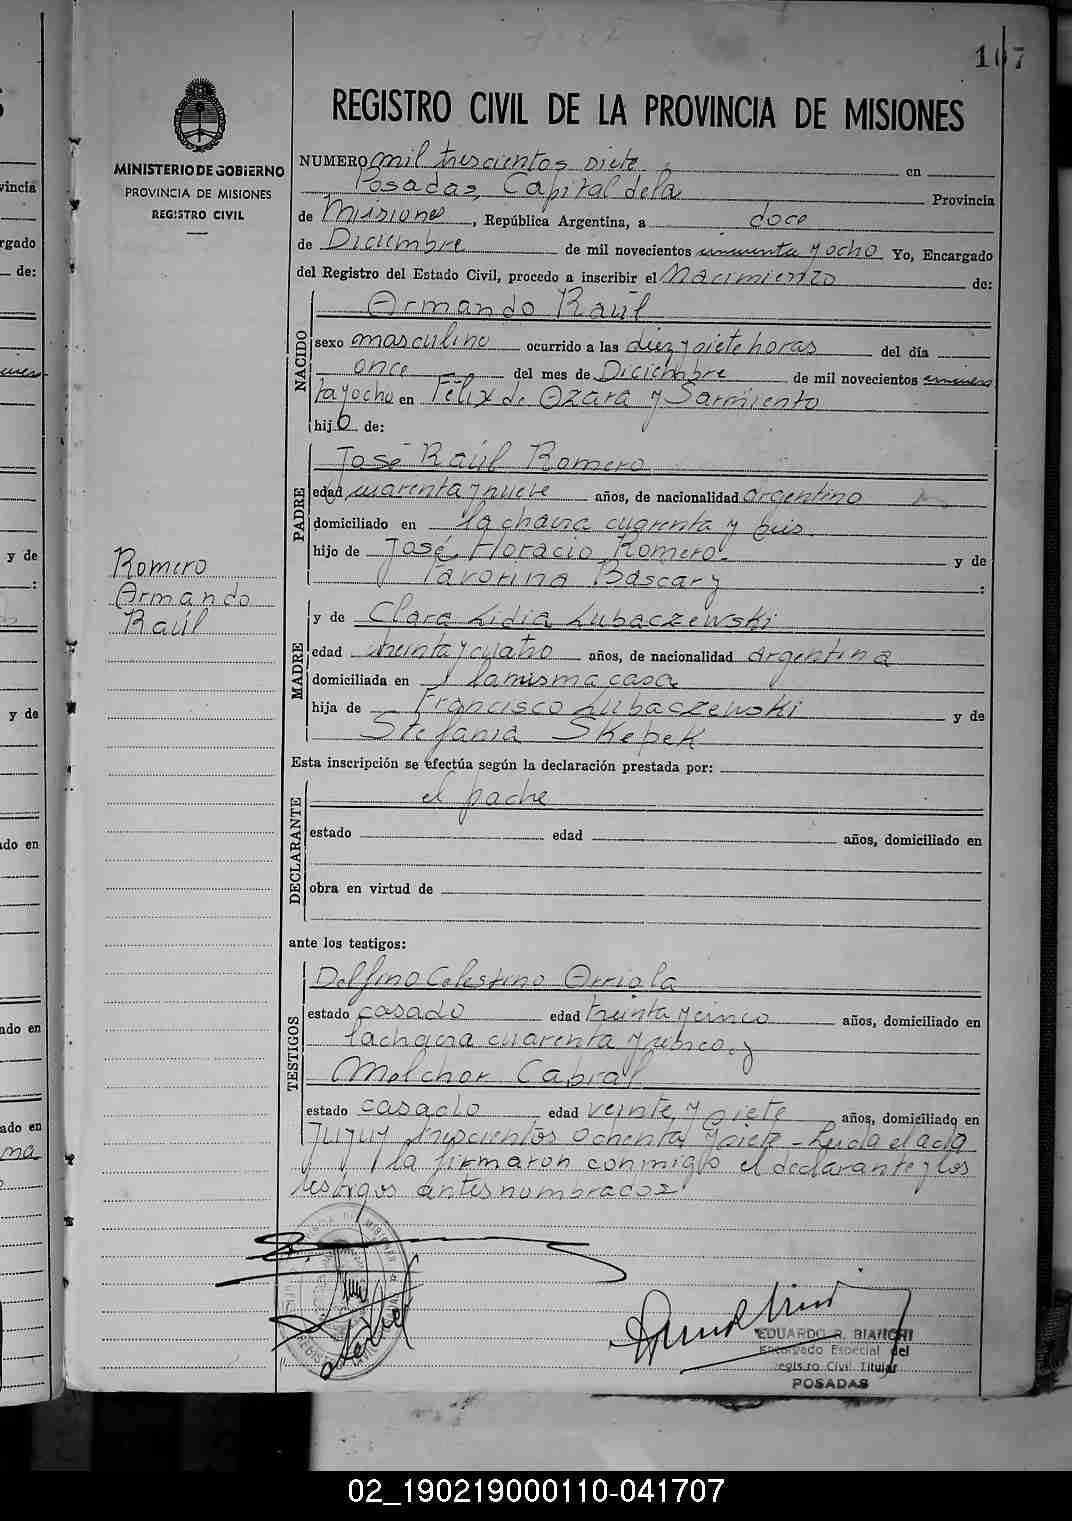 107
REGISTRO CIVIL DE LA PROVINCIA DE MISIONES
MINISTERIO DE GOBIERNO
PROVINCIA DE MISIONES
REGISTRO CIVIL
NUMERO mil trescientos siete en
Posadas, Capital de la Provincia
de Misiones, República Argentina, a doce
de Diciembre de mil novecientos cincuenta y ocho Yo, Encargado
del Registro del Estado Civil, procedo a inscribir el Nacimiento de:
NACIDO
Armando Raúl
sexo masculino ocurrido a las diez y siete horas del día
once del mes de Diciembre de mil novecientos cincuen
ta y ocho en Félix de Azara y Sarmiento
hijo de:
PADRE
José Raúl Romero
edad cuarenta y nueve años, de nacionalidad argentino
domiciliado en la chacra cuarenta y
hijo de José Horacio Romero y de
Bascary :
Romero
Armando
Raúl
MADRE
y de Clara Lidia Lubaczewski
edad treinta y cuatro años, de nacionalidad argentina
domiciliada en la misma casa
hija de Francisco Lubaczewski y de
Stefania Skepek
Esta inscripción se efectúa según la declaración prestada por:
DECLARANTE
el padre
estado edad años, domiciliado en
obra en virtud de
ante los testigos:
TESTIGOS
Delfino Celestino Arriola
estado casado edad treinta y cinco años, domiciliado en
la chacra cuarenta y cinco y
Melchor Cabral
estado casado edad veinte y siete años, domiciliado en
Jujuy trescientos ochenta y siete - Leida el acta
la firmaron conmigo el declarante y los
testigos antes nombrados
EDUARDO R. BIANCHI
Encargado Especial del
Registro Civil Titular
POSADAS
02_190219000110-041707